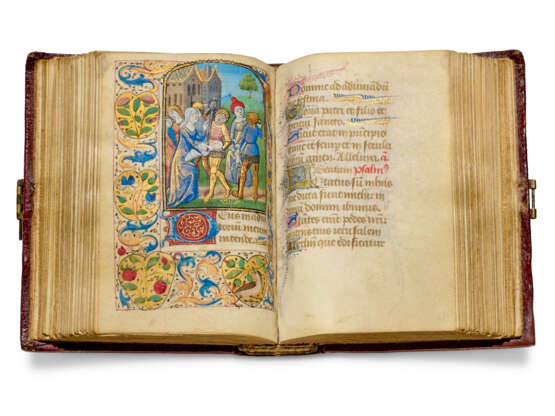 Deus in adiu
toriu meum
intende.
Domine ad adiuuandu
festina.
Gloria patri et filio et
spiritui sancto.
Sicut erat in principio
et nunc et semp et in secula
seculorum amen. Alleluia. a.
Psalm⁹
Letatus sum in his
que dicta sunt michi in
domum domini ibimus.
Stantes erant pedes nri
in atriis tuis iherusalem
Iherusalem que edificatur